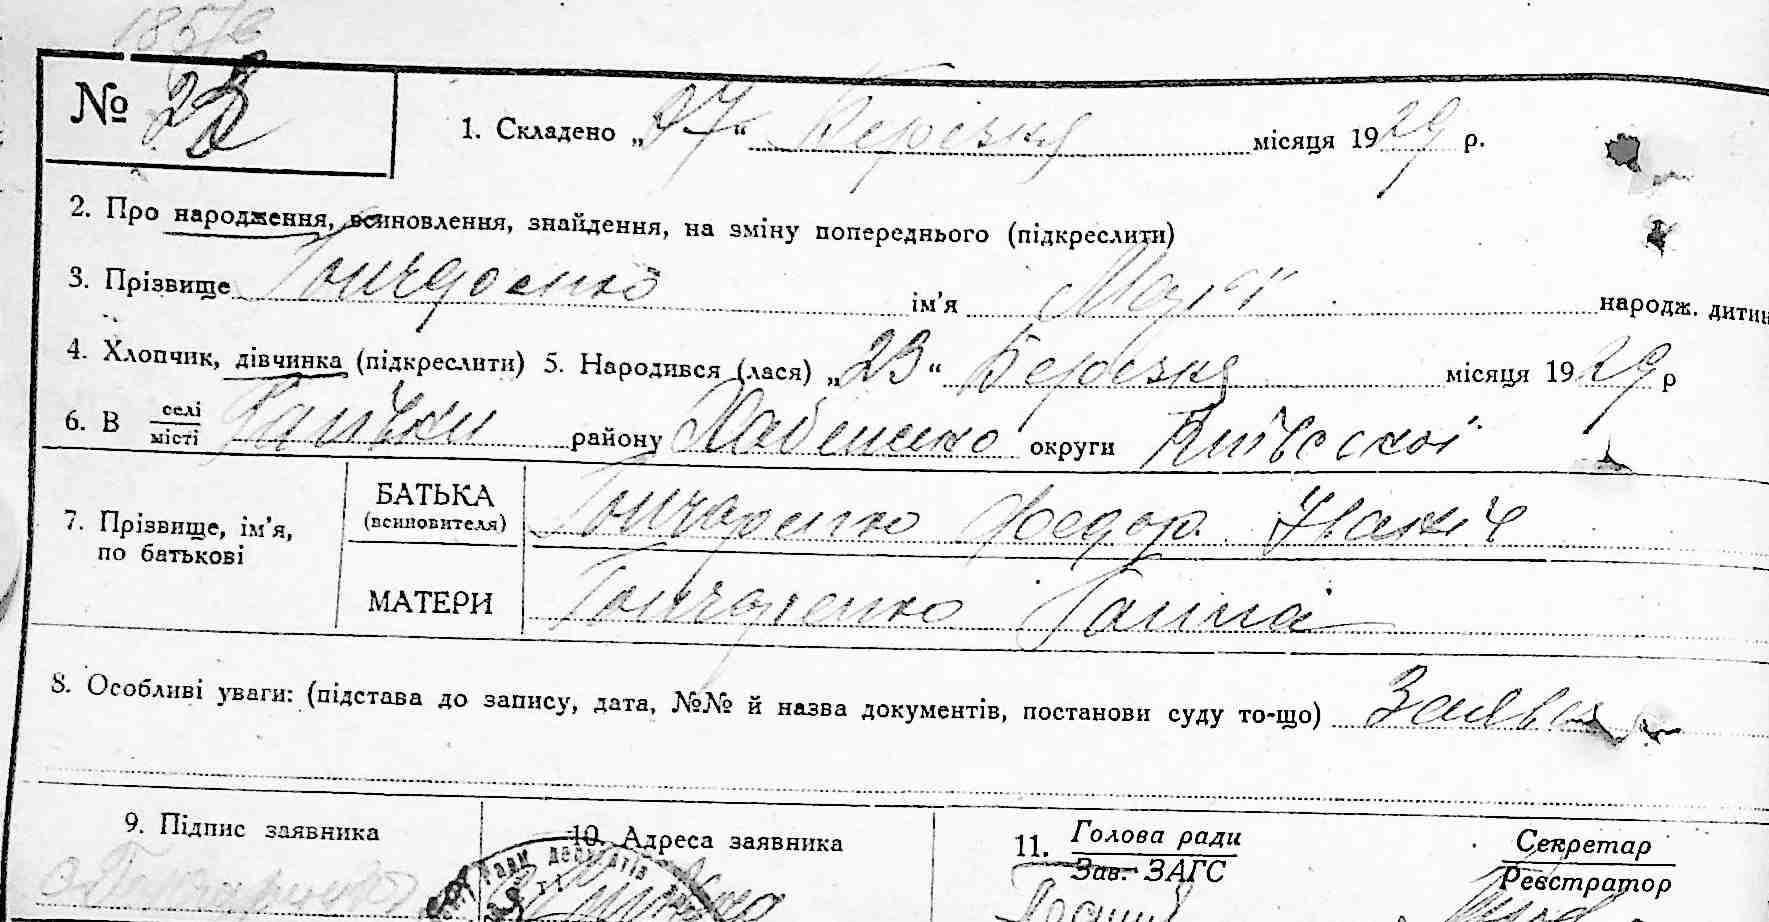 № 22
1. Складено „27“ Березня місяця 1929 р.
2. Про народження, всиновлення, знайдення, на зміну попереднього (підкреслити)
3. Прізвище Гончаренко ім’я Марія народж. дитин
4. Хлопчик, дівчинка (підкреслити) 5. Народився (лася) „23“ Березня місяця 1929 р
6. В селі місті району Хабенсько округи Київської
7. Прізвище, ім’я, по батькові
БАТЬКА (всиновителя) Гончаренко Федор Іванів
МАТЕРИ Гончаренко Ганна
8. Особливі уваги: (підстава до запису, дата, №№ й назва документів, постанови суду то-що) Заява
9. Підпис заявника 10. Адреса заявника 11. Голова ради Секретар
Зав. ЗАГС Реєстратор